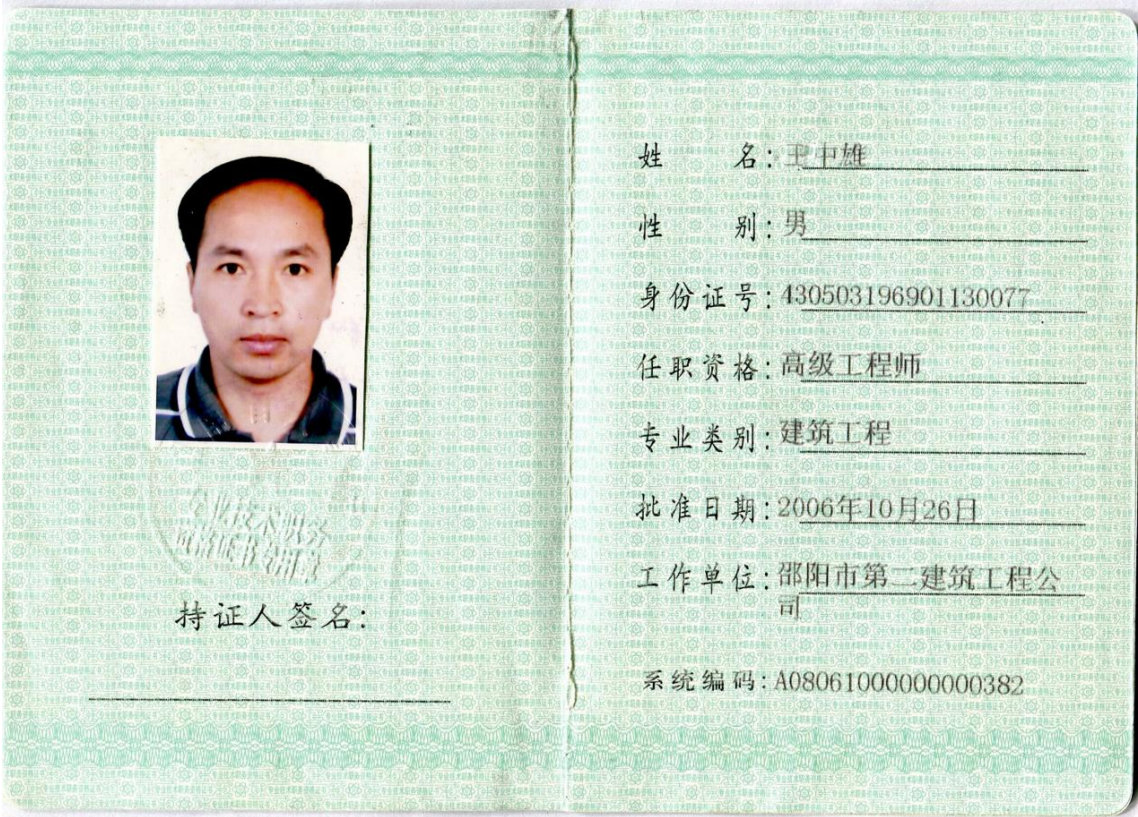 持证人签名:
姓 名: 王中雄
性 别: 男
身份证号: 430503196901130077
任职资格: 高级工程师
专业类别: 建筑工程
批准日期: 2006年10月26日
工作单位: 邵阳市第二建筑工程公
司
系统编码: A08061000000000382